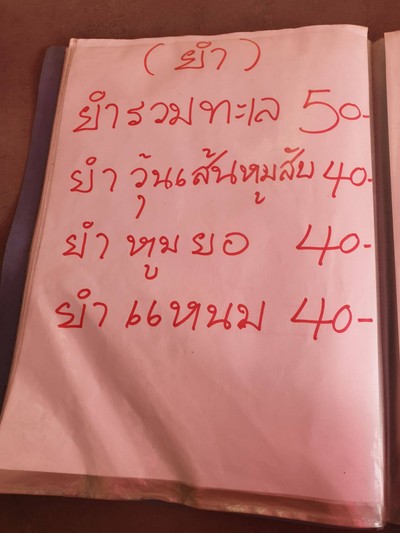 (ยำ)
ยำรวมทะเล 50-
ยำ วุ้นเส้นหมูสับ 40-
ยำ หมูยอ 40-
ยำ แหนม 40-